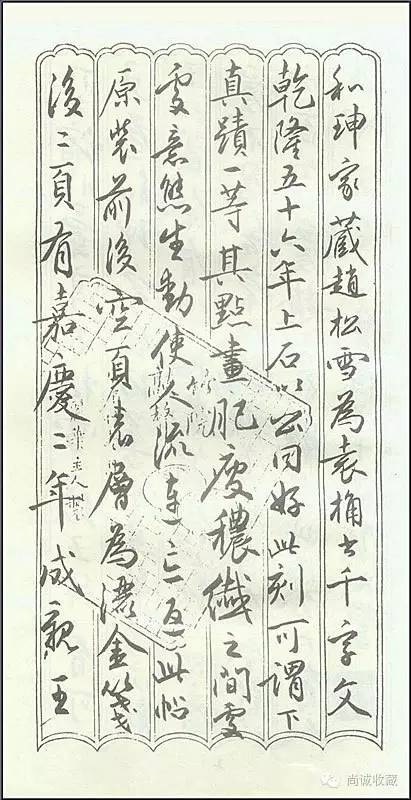 和珅家藏趙松雪為袁桷书千字文
乾隆五十六年上石以公同好此刻可謂下
真蹟一等其點畫肥瘦穠纖之間雯
雯意態生動使人流連忘返此帖
原装前後空頁表層為灑金箋
後二頁有嘉慶二年成親王
竹院
主人製
尚诚收藏